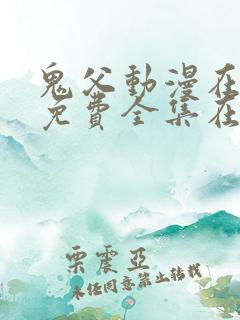 鬼父動漫在
免費全集在
栗震亞
未经同意禁止转载